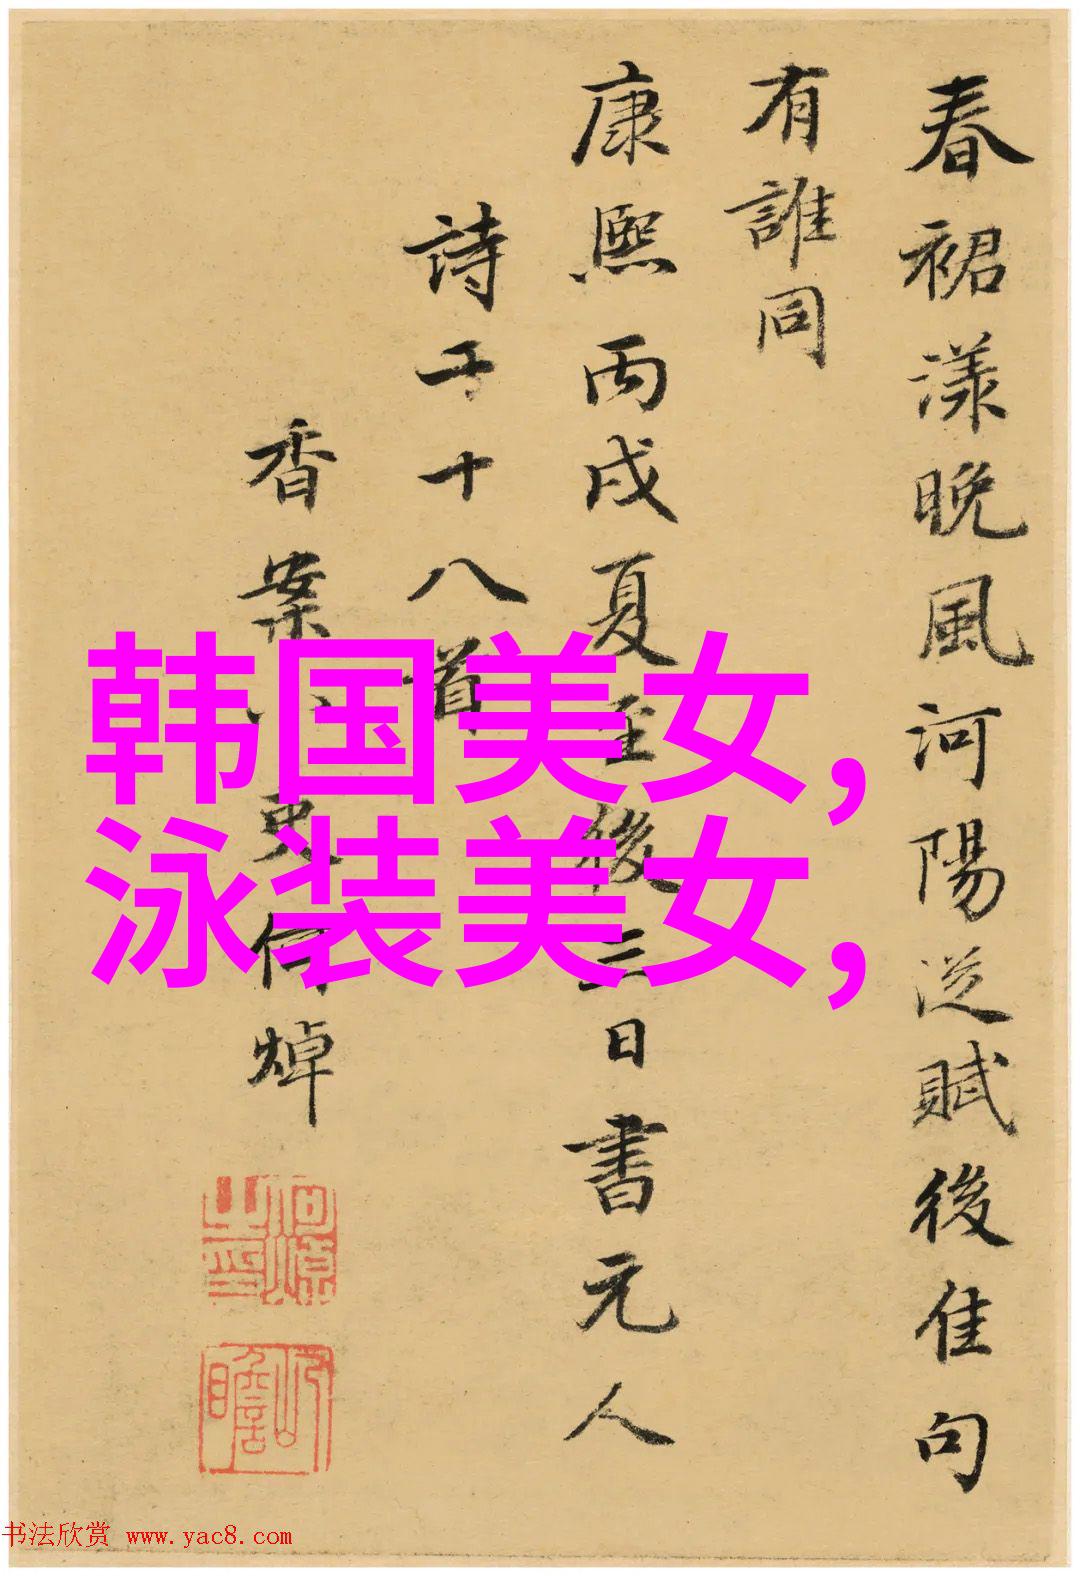 春裙漾晚風河陽賦後佳句
有誰同
康熙丙戌夏至後三日書元人
詩十八首
香案小吏何焯
何焯之印
屺瞻
韩国美女,
泳装美女,
书法欣赏 www.yac8.com